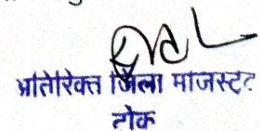 अतिरिक्त जिला माजस्टट
टोंक